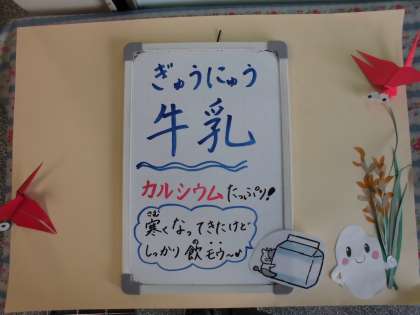 ぎゅうにゅう
牛乳
カルシウムたっぷり!
さむ
寒くなってきたけど
の
しっかり飲モウ〜♪